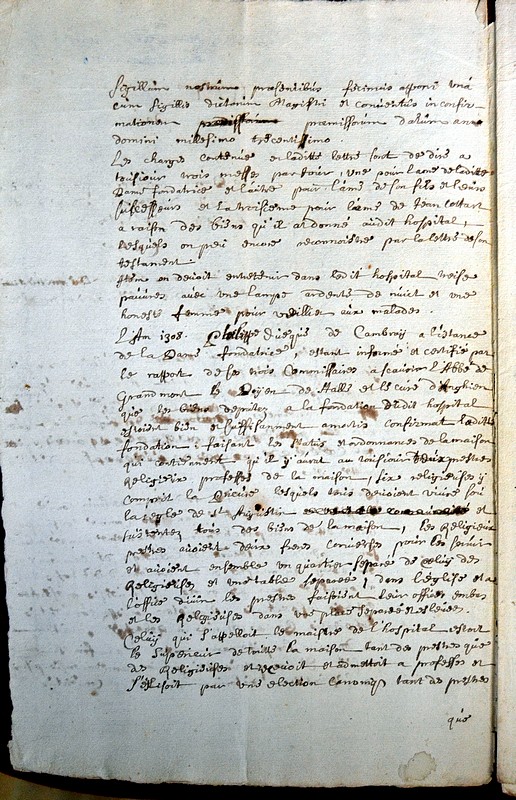 Sigillum nostrum præsentibus fecimus apponi vnà
cum sigillis dictorum Magistri et conuentus in confir-
mationem præmissorum datum anno
domini millesimo trecentissimo.
Les charges contenue en laditte lettre sont de dire a
tousiour trois messes par iour, vne pour l'ame de laditte
Dame fondatrice et l'autre pour l'ame de son fils et leurs
successeurs et la troisieme pour l'ame de Jean Collart
a raison des biens qu'il at donné audit hospital,
lesquels on peu encore reconnoistre par la lettre de son
testament.
Item on deuoit entretenir dans ledit hospital treise
pauures auec vne lampe ardente de nuict et vne
honeste femme pour veillier aux malades.
L'An 1308. Philippe Euesque de Cambray a l'istance
de la Dame fondatrice, estant informé et certifié par
le rapport de ses trois Commissaires a scauoir l'Abbé de
Grandmont le Doyen de Halle et le cure d'Enghien
que les biens deputez a la fondation dudit hospital
estoient bien et suffisanment amortis confirmat laditte
fondation faisant les statuts et ordonnances de la maison
qui contiennent qu'il y aurat au tousiour deux prestres
Religieux professes de la maison, six religieuses y
comprit la Prieure lesquels tous deuoient viure sou
la regle de St Augustin et
sustentez tous des biens de la maison, les Religieux
prestres auoient deux freres conuerses pour les seruir
et auoient ensemble vn quartier separé de celuy des
Religieuses et vne table separée, dans l'eglise et a
l'office diuin les prestres faisoient leur office embas
et les Religieuses dans vne place separée et esleuée.
Celuy qui s'appelloit le maistre de l'hospital estoit
le superieur de toutte la maison tant des prestres que
des Religieuses et receuoit et admettoit a professes et
s'eslisoit par vne election canonique tant des prestres
que